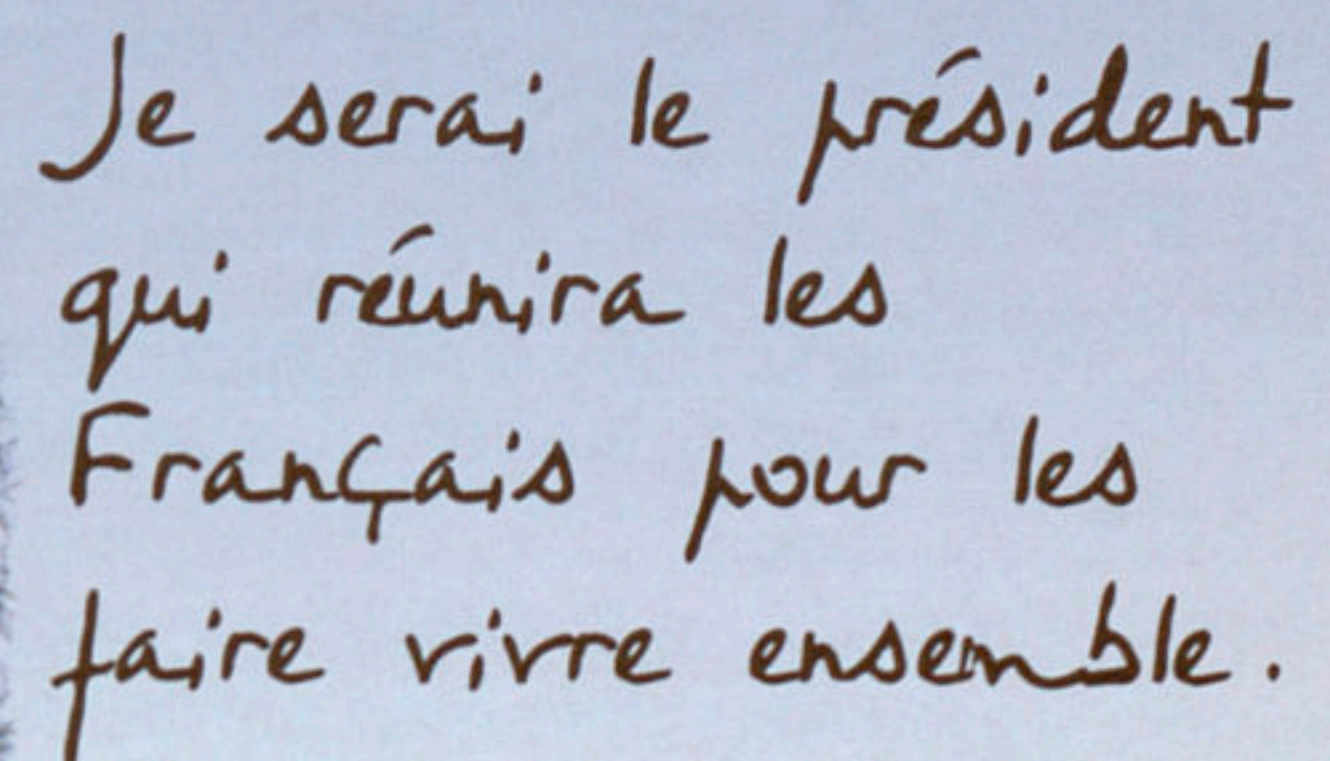 Je serai le président
qui réunira les
Français pour les
faire vivre ensemble.